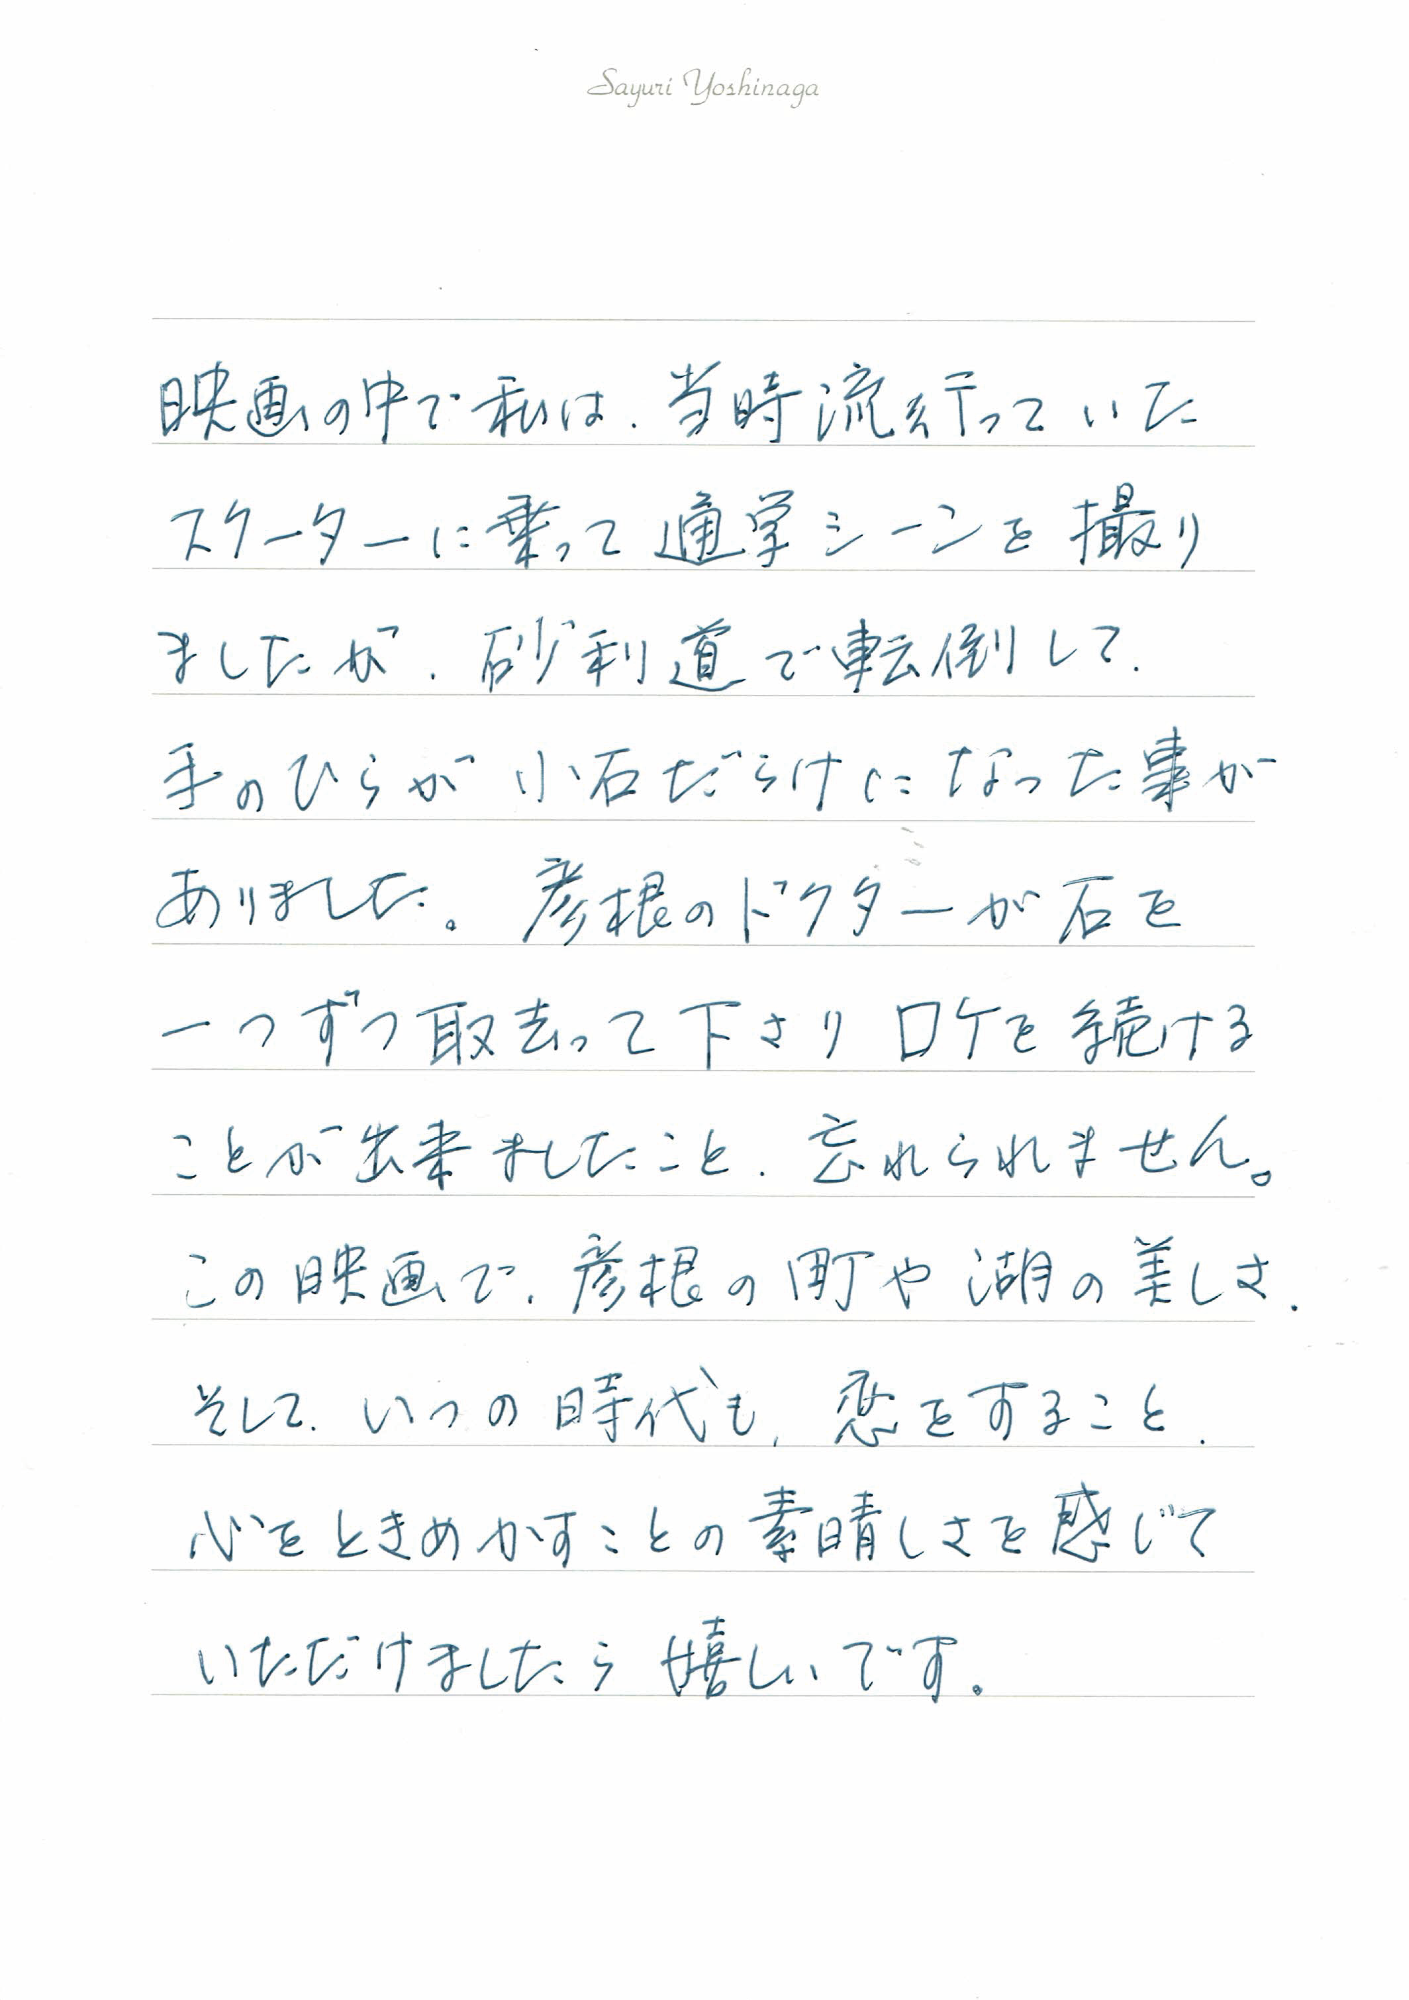 Sayuri Yoshinaga
映画の中で私は、当時流行っていた
スクーターに乗って通学シーンを撮り
ましたが、砂利道で転倒して、
手のひらが小石だらけになった事が
ありました。彦根のドクターが石を
一つずつ取去って下さりロケを続ける
ことが出来ましたこと、忘れられません。
この映画で、彦根の町や湖の美しさ、
そして、いつの時代も、恋をすること、
心をときめかすことの素晴しさを感じて
いただけましたら嬉しいです。